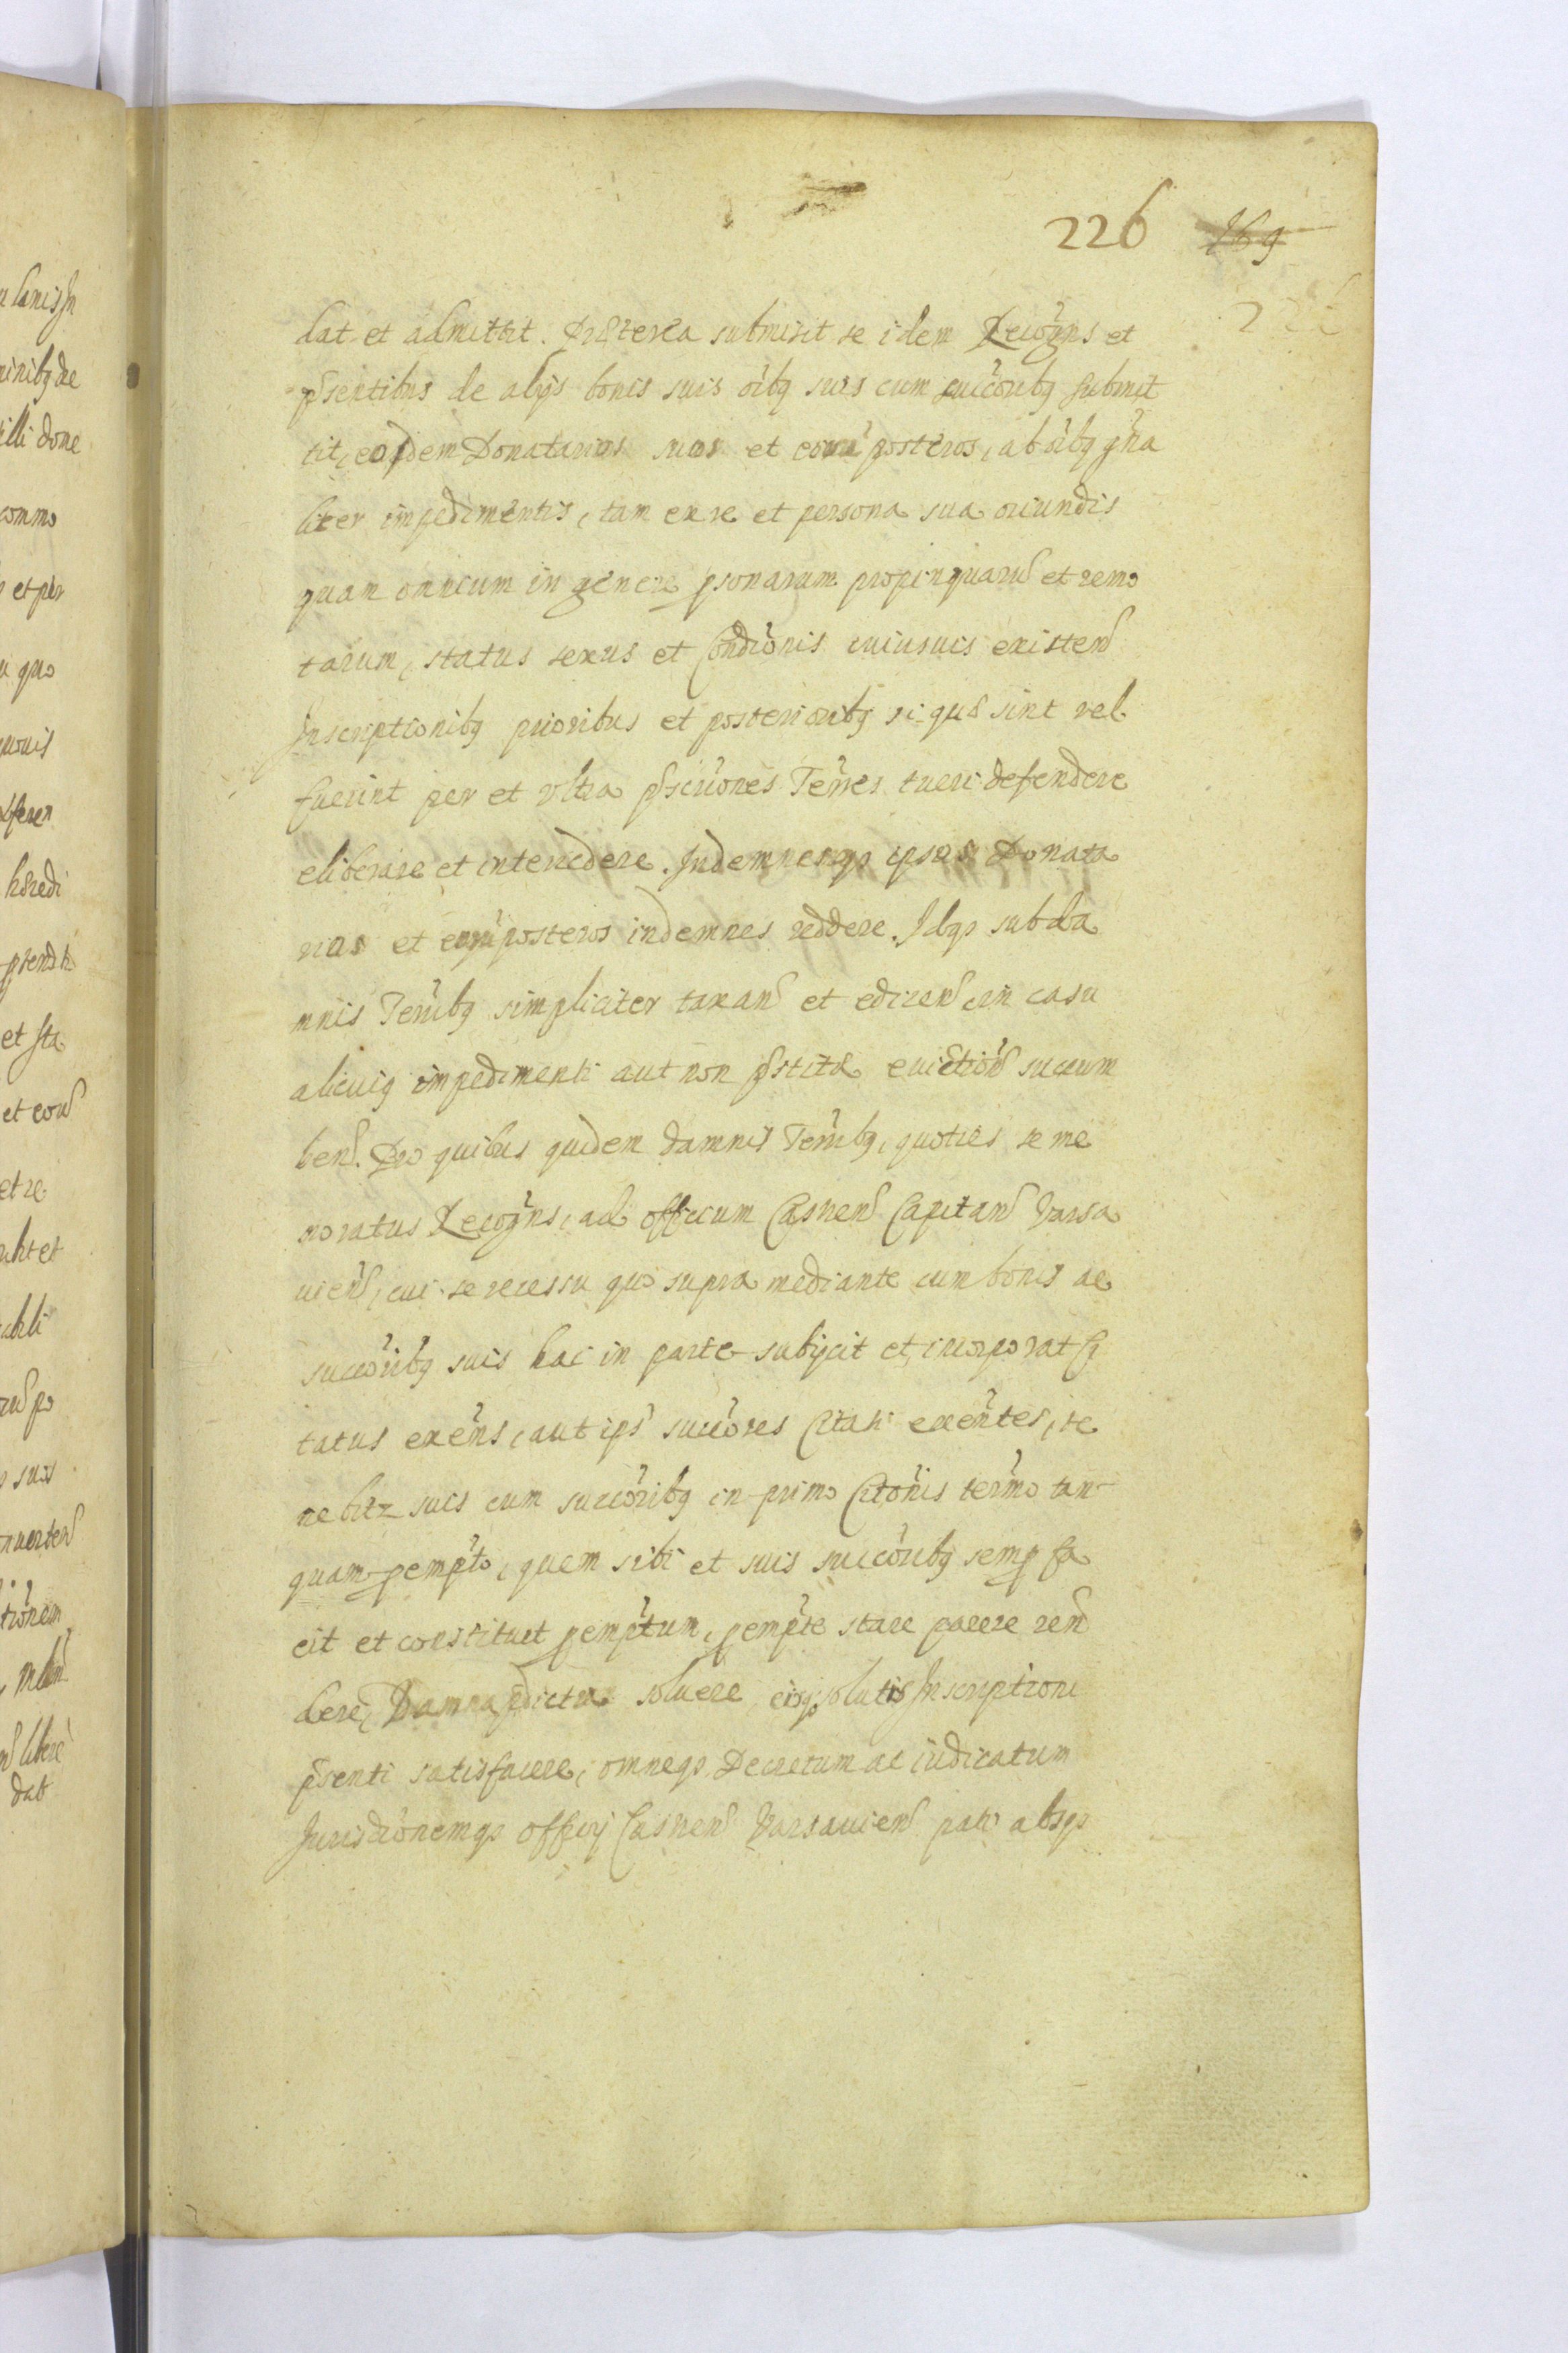 226 169
226
dat et admittit. Præterea submisit se idem Recogñs et
p̃sentibus de alijs bonis suis oĩbq suis cum succõribq submit
tit, eosdem Donatarios suos et eorũ posteros, ab oĩbq gñna
liter impedimentis, tam ex re et persona sua oriundis
quam omnium in genere psonarum propinquarũ et remo
tarum, status sexus et Condiõnis cuiusuis existeñ
Inscriptionibq prioribus et posterioribq si quæ sint vel
fuerint per et vltra p̃scriõnes Terr̃es tueri defendere
eliberare et intercedere. Indemnesqз ipsos Donata
rios et eorũ posteros indemnes reddere. Idqз sub da
mnis Terr̃ibq simpliciter taxañ et ediceñ, in casu
alicuiq impedimenti aut non p̃stitæ euictioñ succum
beñ. Pro quibus quidem damnis Terr̃ibq, quoties se me
moratus Recogñs, ad officium Castreñ Capitañ Varsa
uieñ, cui se recessu quo supra mediante cum bonis ac
succõribq suis hac in parte subijcit et incorporat Ci
tatus exeñs, aut ipsĩ succõres Citati exeñtes, te
nebitz suis cum succõribq in primo Citõnis termo tan-
quam pempt̃o, quem sibi et suis succõribq semp fa
cit et constituet pempt̃um, pempt̃e stare parere reñ
dere, Damna p̃dicta soluere eisqз solutis Inscriptioni
p̃senti satisfacere, omneqз Decretum ac iudicatum
Jurisdiõnemqз officij Castreñ Varsauieñ pati absqз